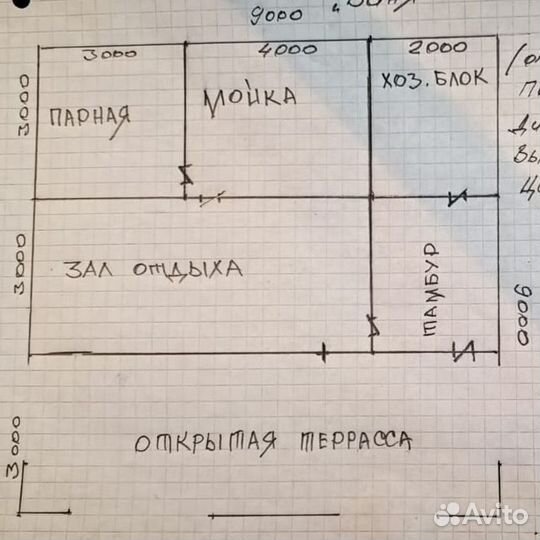 9000
3000 4000 2000
3000
ПАРНАЯ
МОЙКА
ХОЗ. БЛОК
3000
ЗАЛ ОТДЫХА
ТАМБУР
9000
3000
ОТКРЫТАЯ ТЕРРАССА
Avito